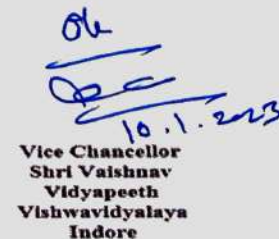 Ok
10.1.2023
Vice Chancellor
Shri Vaishnav
Vidyapeeth
Vishwavidyalaya
Indore